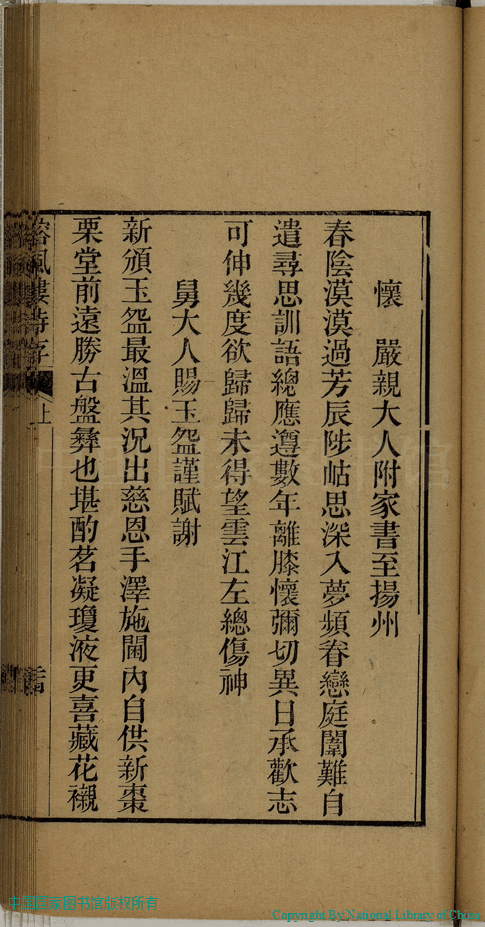 懷　嚴親大人附家書至揚州
春陰漠漠過芳辰陟岵思深入夢頻眷戀庭闈難自
遣尋思訓語總應遵數年離膝懷彌切異日承歡志
可伸幾度欲歸歸未得望雲江左總傷神
舅大人賜玉盌謹賦謝
新頒玉盌最溫其況出慈恩手澤施閫內自供新棗
栗堂前遠勝古盤彝也堪酌茗凝瓊液更喜藏花襯
風樓詩存
上
中国国家图书馆版权所有
Copyright By National Library of China